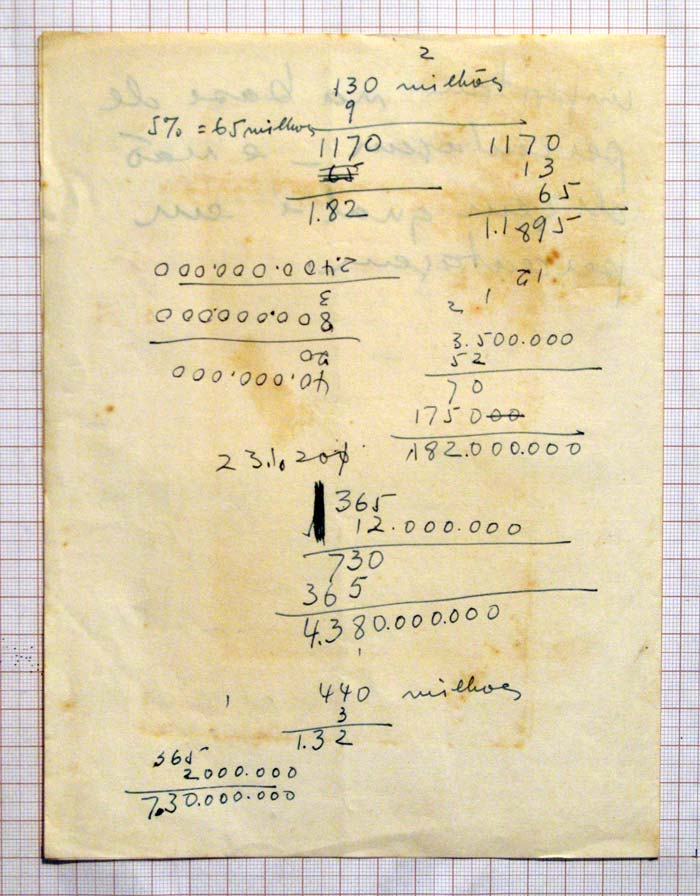 2
130 milhões
9
5% = 65 milhões
1170
65
1.82
1170
13
65
1.1895
40.000.000
20
800.000.000
3
2.400.000.000
12
2 1
3.500.000
52
70
175000
182.000.000
23% 20%
365
12.000.000
730
365
4.380.000.000
440 milhões
3
1.32
365
2000.000
7.30.000.000